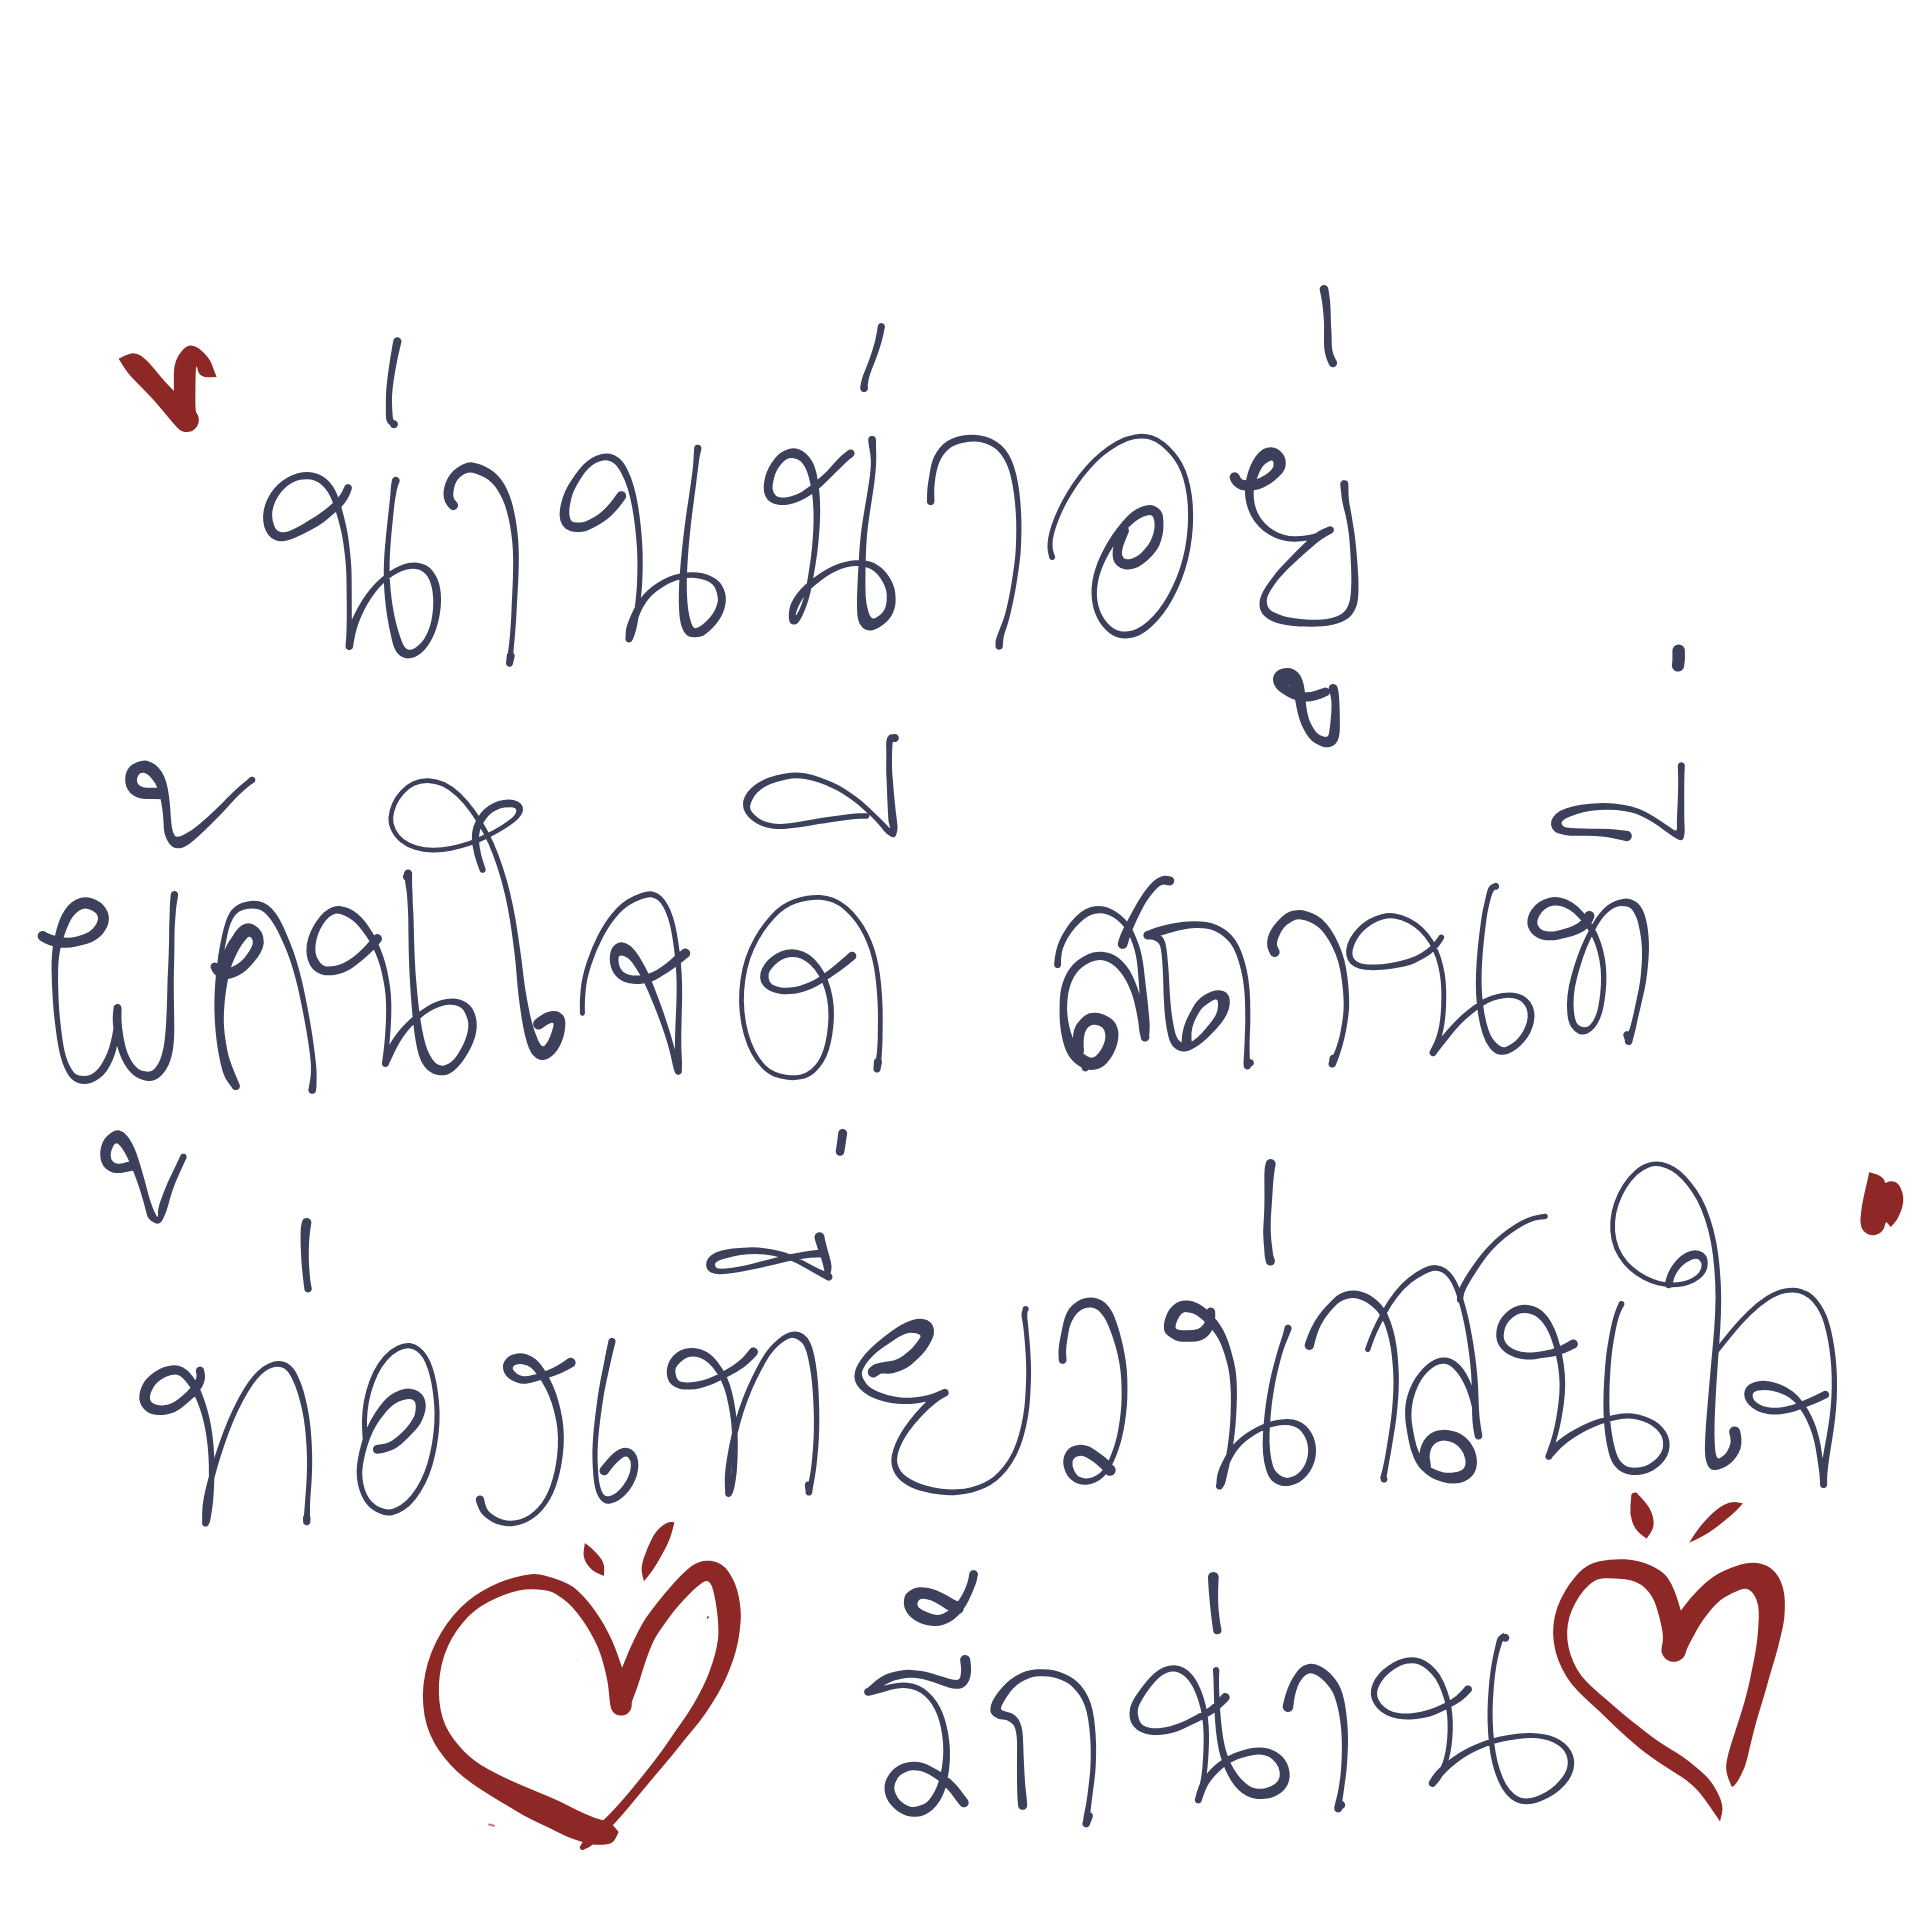 น่านน่าอยู่
ผู้คนใจดี สถานที่
ท่องเที่ยวน่าสนใจ
รักน่าน